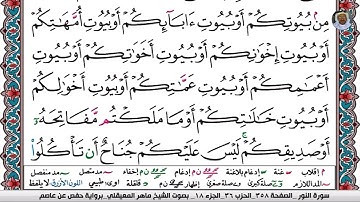 مِنۢ بُيُوتِكُمْ أَوْ بُيُوتِ ءَابَآئِكُمْ أَوْ بُيُوتِ أُمَّهَٰتِكُمْ
أَوْ بُيُوتِ إِخْوَٰنِكُمْ أَوْ بُيُوتِ أَخَوَٰتِكُمْ أَوْ بُيُوتِ
أَعْمَٰمِكُمْ أَوْ بُيُوتِ عَمَّٰتِكُمْ أَوْ بُيُوتِ أَخْوَٰلِكُمْ
أَوْ بُيُوتِ خَٰلَٰتِكُمْ أَوْ مَا مَلَكْتُم مَّفَاتِحَهُۥٓ
أَوْ صَدِيقِكُمْ ۚ لَيْسَ عَلَيْكُمْ جُنَاحٌ أَن تَأْكُلُوا۟
سورة النور _ الصفحة ٣٥٨ _ الحزب ٣٦ _ الجزء ١٨ _ بصوت الشيخ ماهر المعيقلي _ برواية حفص عن عاصم